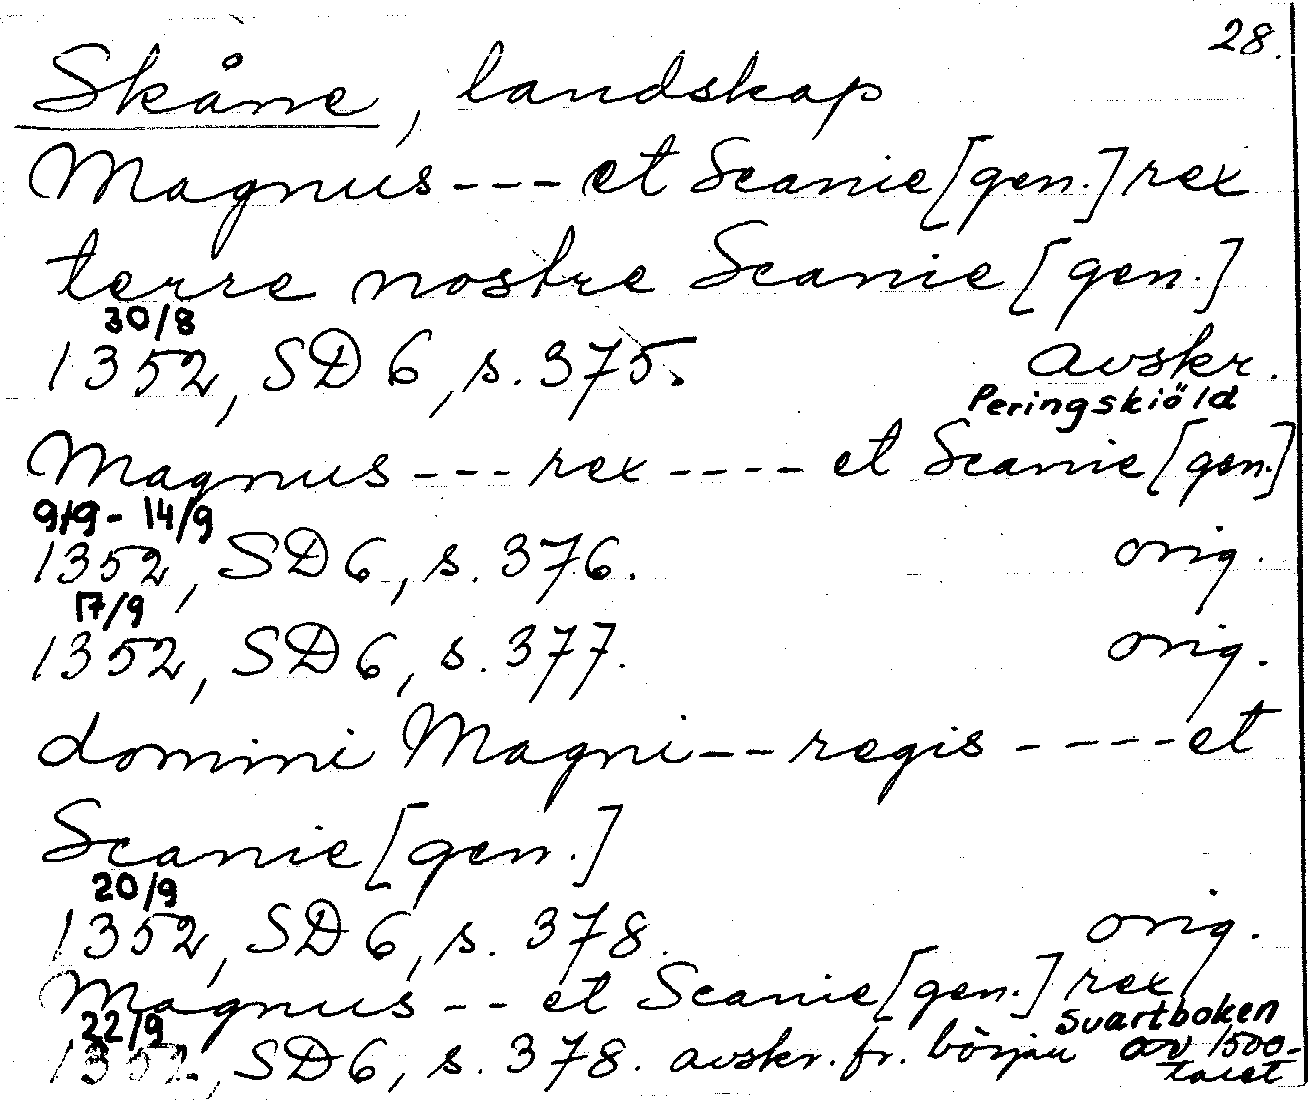 28.
Skåne, landskap
Magnus --- et Scanie [gen.] rex
terre nostre Scanie [gen.]
30/8
1352, SD 6, s. 375. avskr.
Peringskiöld
Magnus --- rex ---- et Scanie [gen.]
9/9 - 14/9
1352, SD 6, s. 376. orig.
17/9
1352, SD 6, s. 377. orig.
domini Magni -- regis ---- et
Scanie [gen.]
20/9
1352, SD 6, s. 378. orig.
Magnus -- et Scanie [gen.] rex
22/9 Svartboken
1352, SD 6, s. 378. avskr. fr. början av 1500-
talet